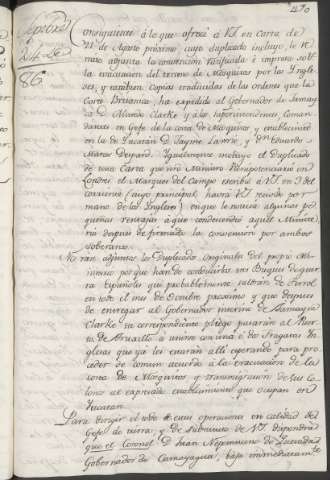 470
24 de
86
Consiguiente à lo que ofreci à V.I. en Carta de
de Agosto proximo cuyo duplicado incluyo, le re
mito adjunta la convencion ratificada è impresa sobre
la evacuacion del terreno de Mosquitos por los Ingle
ses, y tambien copias traducidas de las ordenes que la
Corte Britanica ha expedido al Governador de Jamay
ca D. Alured Clarke y à los Superintendentes, Coman
dantes en Gefe de la costa de Mosquitos y establecimien
to de Yucatàn D. Jayme Lawrie, y Dn. Eduardo
Marcos Despard. Igualmente incluyo el Duplicado
de una Carta que nro Ministro Plenipotenciario en
Londres el Marques del Campo escribio à V.I. en 3 del
corriente (cuyo principal havrà V.I. recivido por
mano de los Ingleses) en que le noticia algunas pe
queñas ventajas à que condescendio aquel Ministe
rio despues de firmada la convencion por ambos
soberanos.
Ván adjuntos los Duplicados originales del propio
por que han de conducirlos un Buque de guer
ra Español que probablemente, saldrán de Ferrol
en todo el mes de Octubre proximo y que despues
de entregar al Governador interino de Jamayca
Clarke su correspondiente pliego pasarán al Puer
to de Truxillo à unirse con una ò dos Fragatas In
glesas que ya les esnarán alli esperando para pro
ceder de comun acuerdo à la evacuacion de la
costa de Mosquitos y transmigracion de sus Co
lonos al expresado establecimiento que ocupan en
Yucatan.
Para dirigir el todo de estas operaciones en calidad de
Gefe de tierra, y de Subalterno de V.I. dispondrá
que el Coronel D. Juan Nepomuceno de Quesada
Governador de Comayagua, baxe inmediatamte